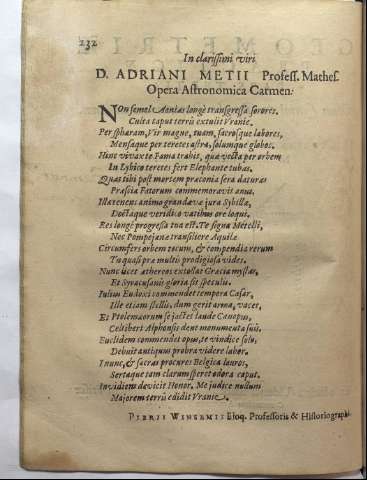 232
In clarissimi viri
D. ADRIANI METII Profess. Mathes.
Opera Astronomica Carmen.
Non semel Aonias longè transgressa sorores
Culta caput terris extulit Vranie.
Per spharam, Vir magne, tuam, sacrosque labores,
Mensaque per teretes astra, solumque globos.
Hinc vivax te Fama trahit, quæ vecta per orbem
In Lybico teretes fert Elephante tubas.
Quas tibi post mortem præconia sera daturas
Præscia Fatorum commemoravit anus.
Illa tenens animo grandæva jura Sibyllæ,
Doctaque veridico vatibus ore loqui.
Res longè progressa tua est. Te signa Metelli,
Nec Pompejanæ transiliere Aquilæ.
Circumfers orbem tecum, & compendia rerum
Tu quasi præ multis prodigiosa vides.
Nunc licet athereos extollas Græcia mystas,
Et Syracusani gloria sit specului.
Iulius Eudoxi commendet tempora Cæsar,
Ille etiam stellis, dum gerit arma, vacet,
Et Ptolemæorum se jactet laude Canopus,
Celtiberi Alphonsi dent monumenta suis.
Euclidem commendet opus, te vindice solu,
Debuit antiquus probra videre labor.
I nunc, & sacras procures Belgica lauros,
Sertaque tam clarum speret odora caput.
Invidiem devicit Honor. Me judice nullum
Majorem terris edidit Vranie.
PIERII WINSEMII Eloq. Professoris & Historiographi.